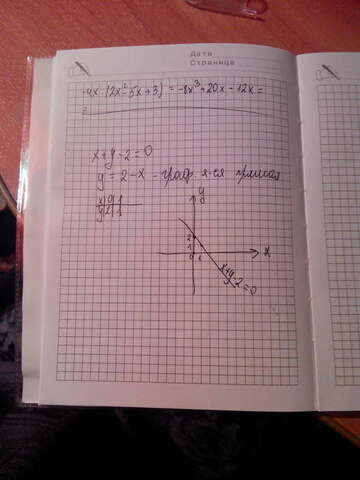 Дата
Страница
-4x (2x²-5x+3) = -8x³+20x-12x=
=
x+y-2=0
y=2-x - граф. я-ся прямая
x 0 1
y 2 1
y
2
1
0 1
x
x+y-2=0